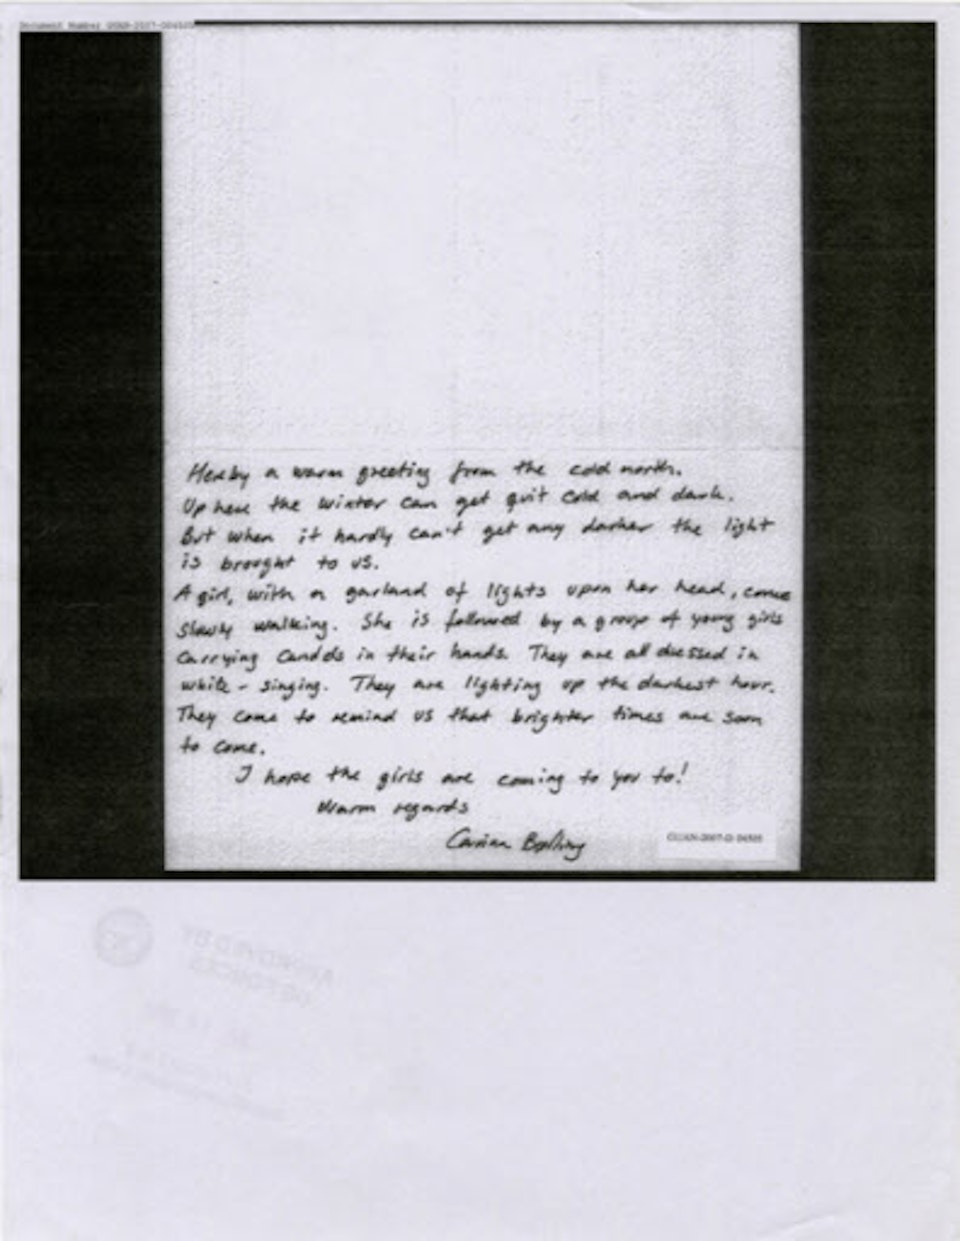 Document Number
Hereby a warm greeting from the cold north.
Up here the winter can get quit cold and dark.
But when it hardly can't get any darker the light
is brought to us.
A girl, with a garland of lights upon her head, come
slowly walking. She is followed by a group of young girls
carrying candels in their hands. They are all dressed in
white - singing. They are lighting up the darkest hour.
They come to remind us that brighter times are soon
to come.
I hope the girls are coming to you to!
Warm regards
APPROVED BY
US FORCES